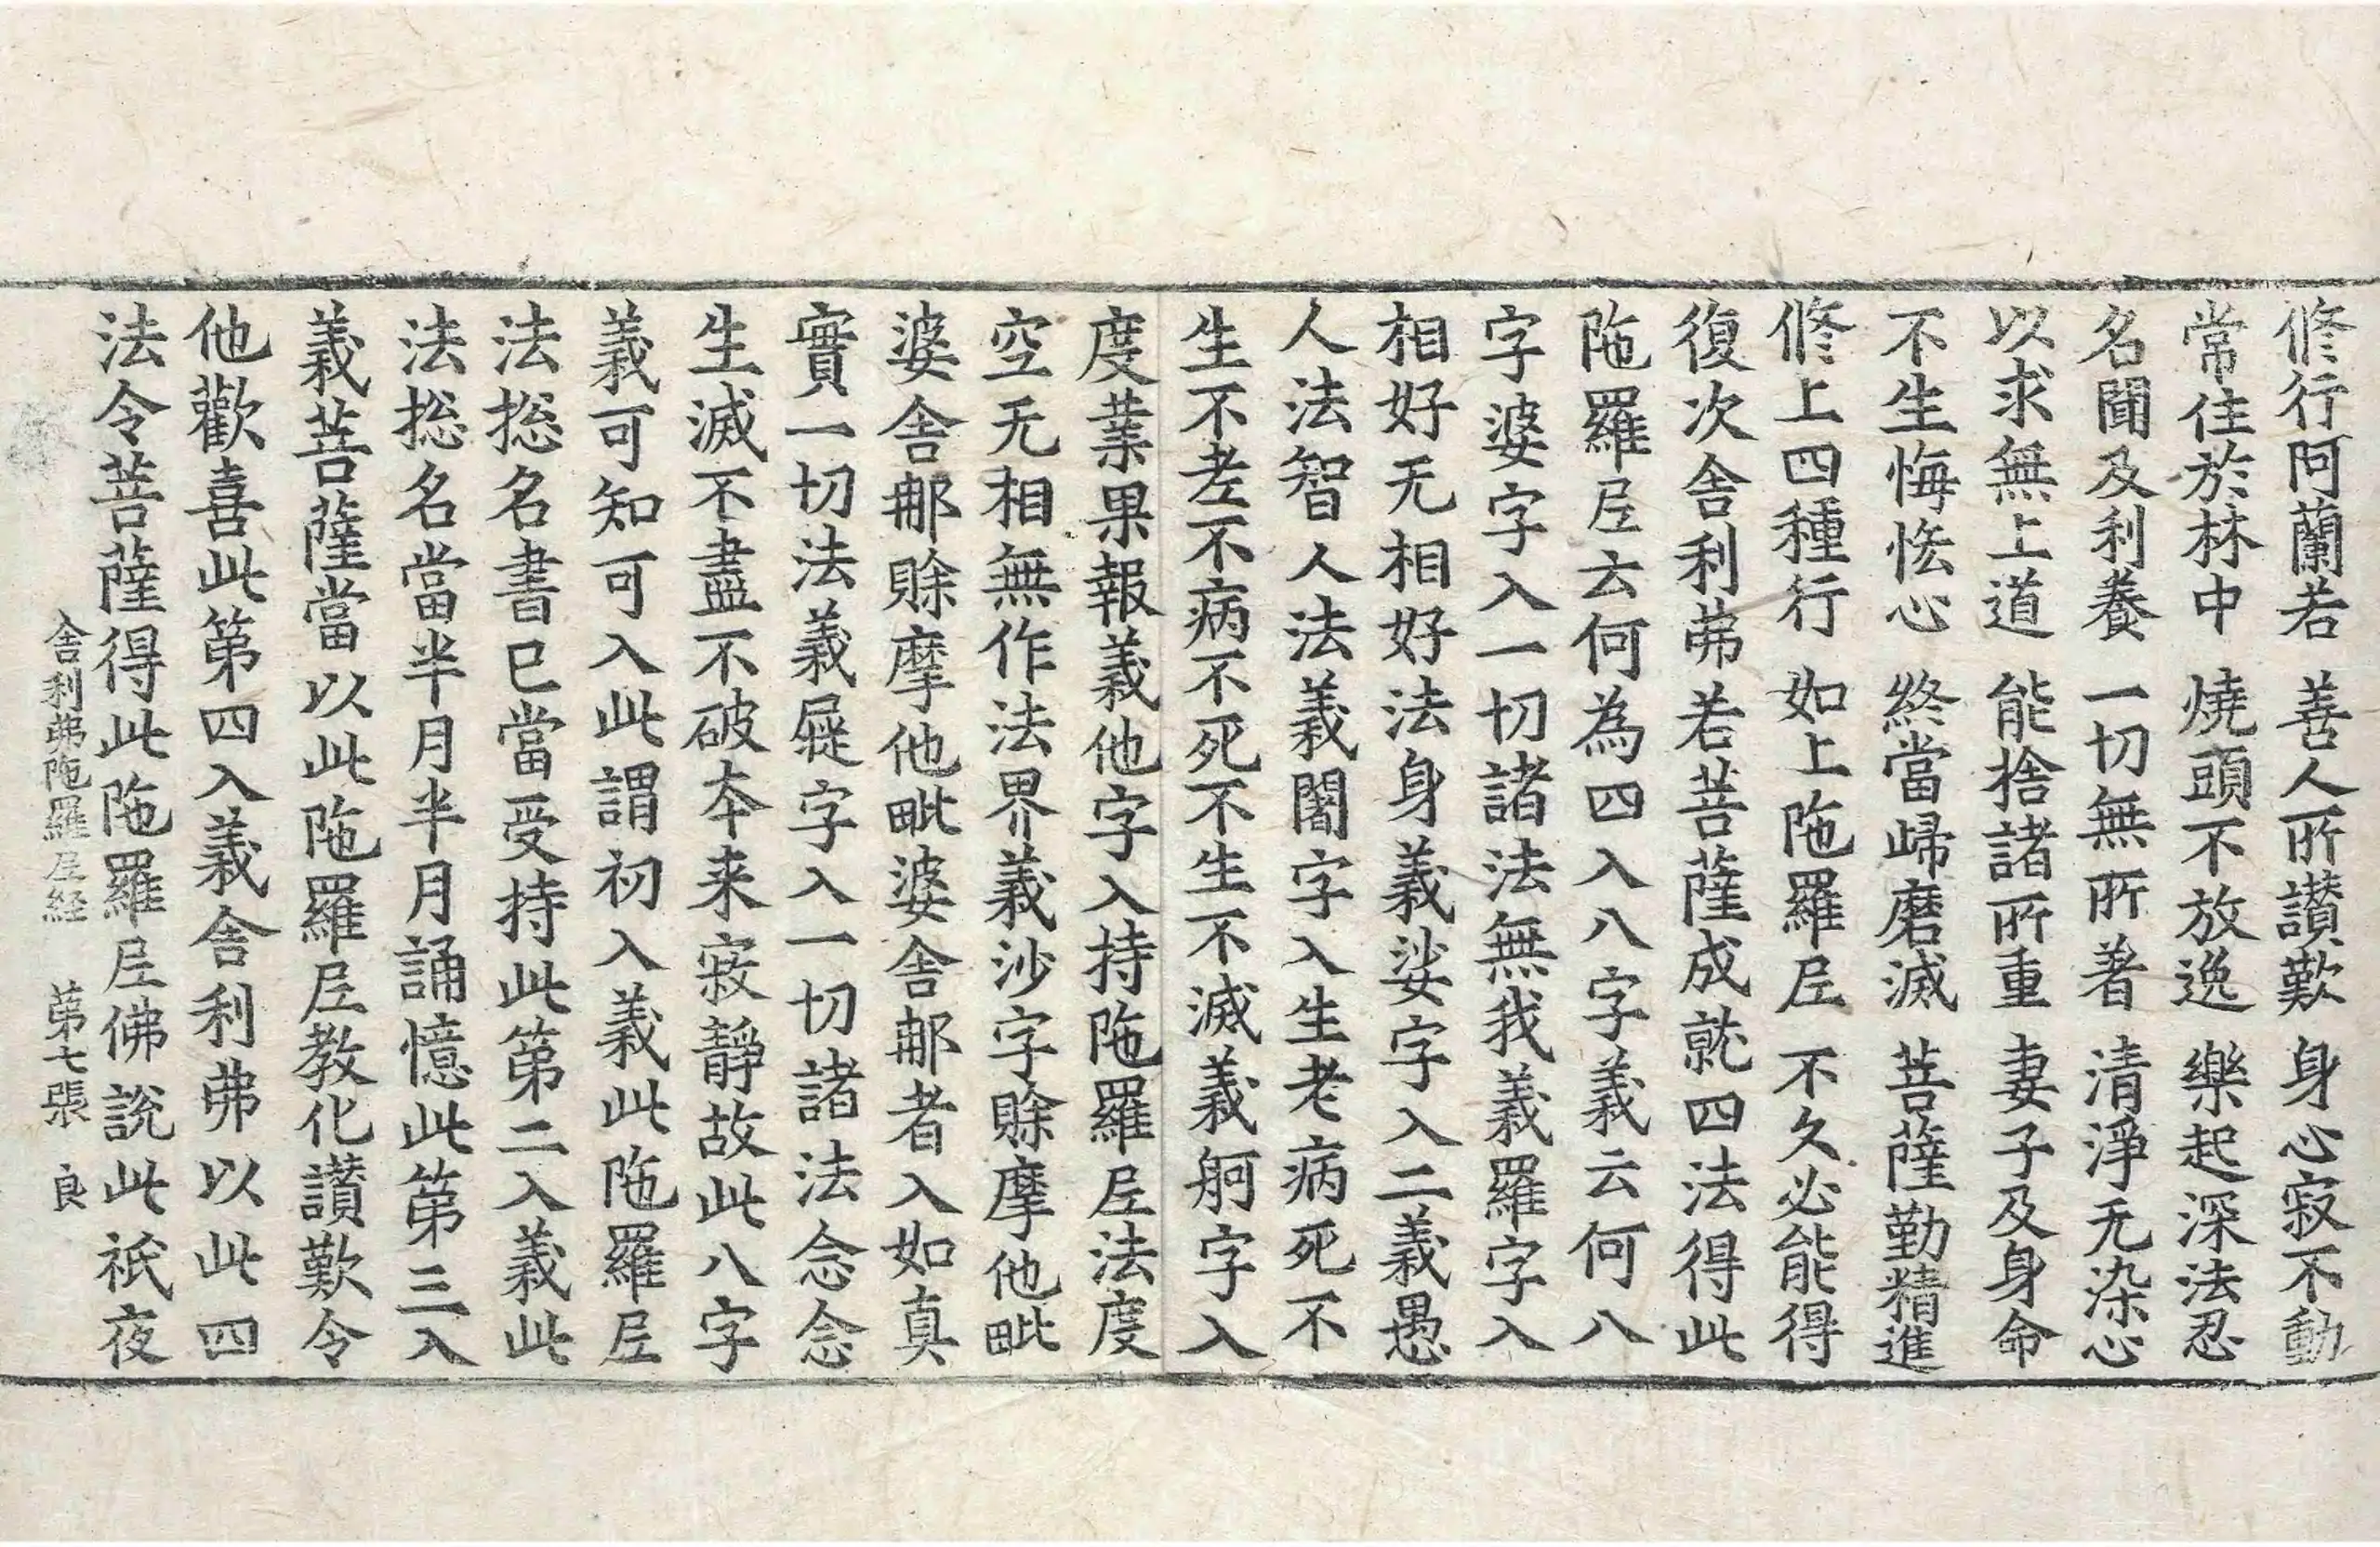 修行阿蘭若　善人所讃歎　身心寂不動
常住於林中　燒頭不放逸　樂起深法忍
名聞及利養　一切無所著　清淨无染心
以求無上道　能捨諸所重　妻子及身命
不生悔恡心　終當歸磨滅　菩薩勤精進
修上四種行　如上陁羅𡰱　不久必能得
復次舍利弗若菩薩成就四法得此
陁羅𡰱云何為四入八字義云何八
字婆字入一切諸法無我義羅字入
相好无相好法身義娑字入二義愚
人法智人法義闍字入生老病死不
生不老不病不死不生不滅義舸字入
度業果報義他字入持陁羅𡰱法度
空无相無作法界義沙字賒摩他毗
婆舍那賒摩他毗婆舍那者入如真
實一切法義屣字入一切諸法念念
生滅不盡不破本来寂靜故此八字
義可知可入此謂初入義此陁羅𡰱
法揔名書已當受持此第二入義此
法揔名當半月半月誦憶此第三入
義菩薩當以此陁羅𡰱教化讃歎令
他歡喜此第四入義舍利弗以此四
法令菩薩得此陁羅𡰱佛說此祇夜
舍利弗陁羅𡰱経　第七張　良